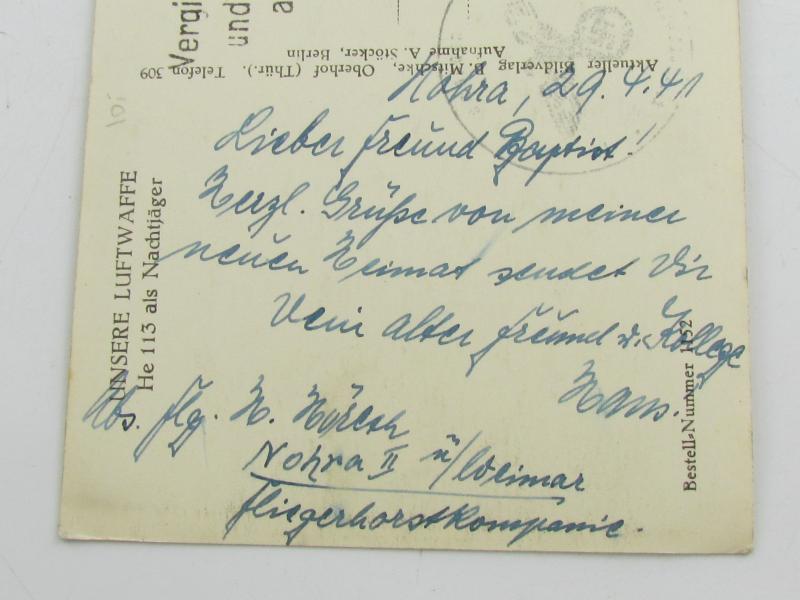 Vergi
und
a
Aktueller Bildverlag B. Mitschke, Oberhof (Thür.). Telefon 309
Aufnahme A. Stöcker, Berlin
Nohra, 29.4.41
Lieber Freund Baptist!
Herzl. Grüße von meiner
neuen Heimat sendet Dir
Dein alter Freund u. Kollege
Hans.
Abs. Flg. H.
Nohra II ü/Weimar
Fliegerhorstkompanie.
UNSERE LUFTWAFFE
He 113 als Nachtjäger
Bestell-Nummer 1152